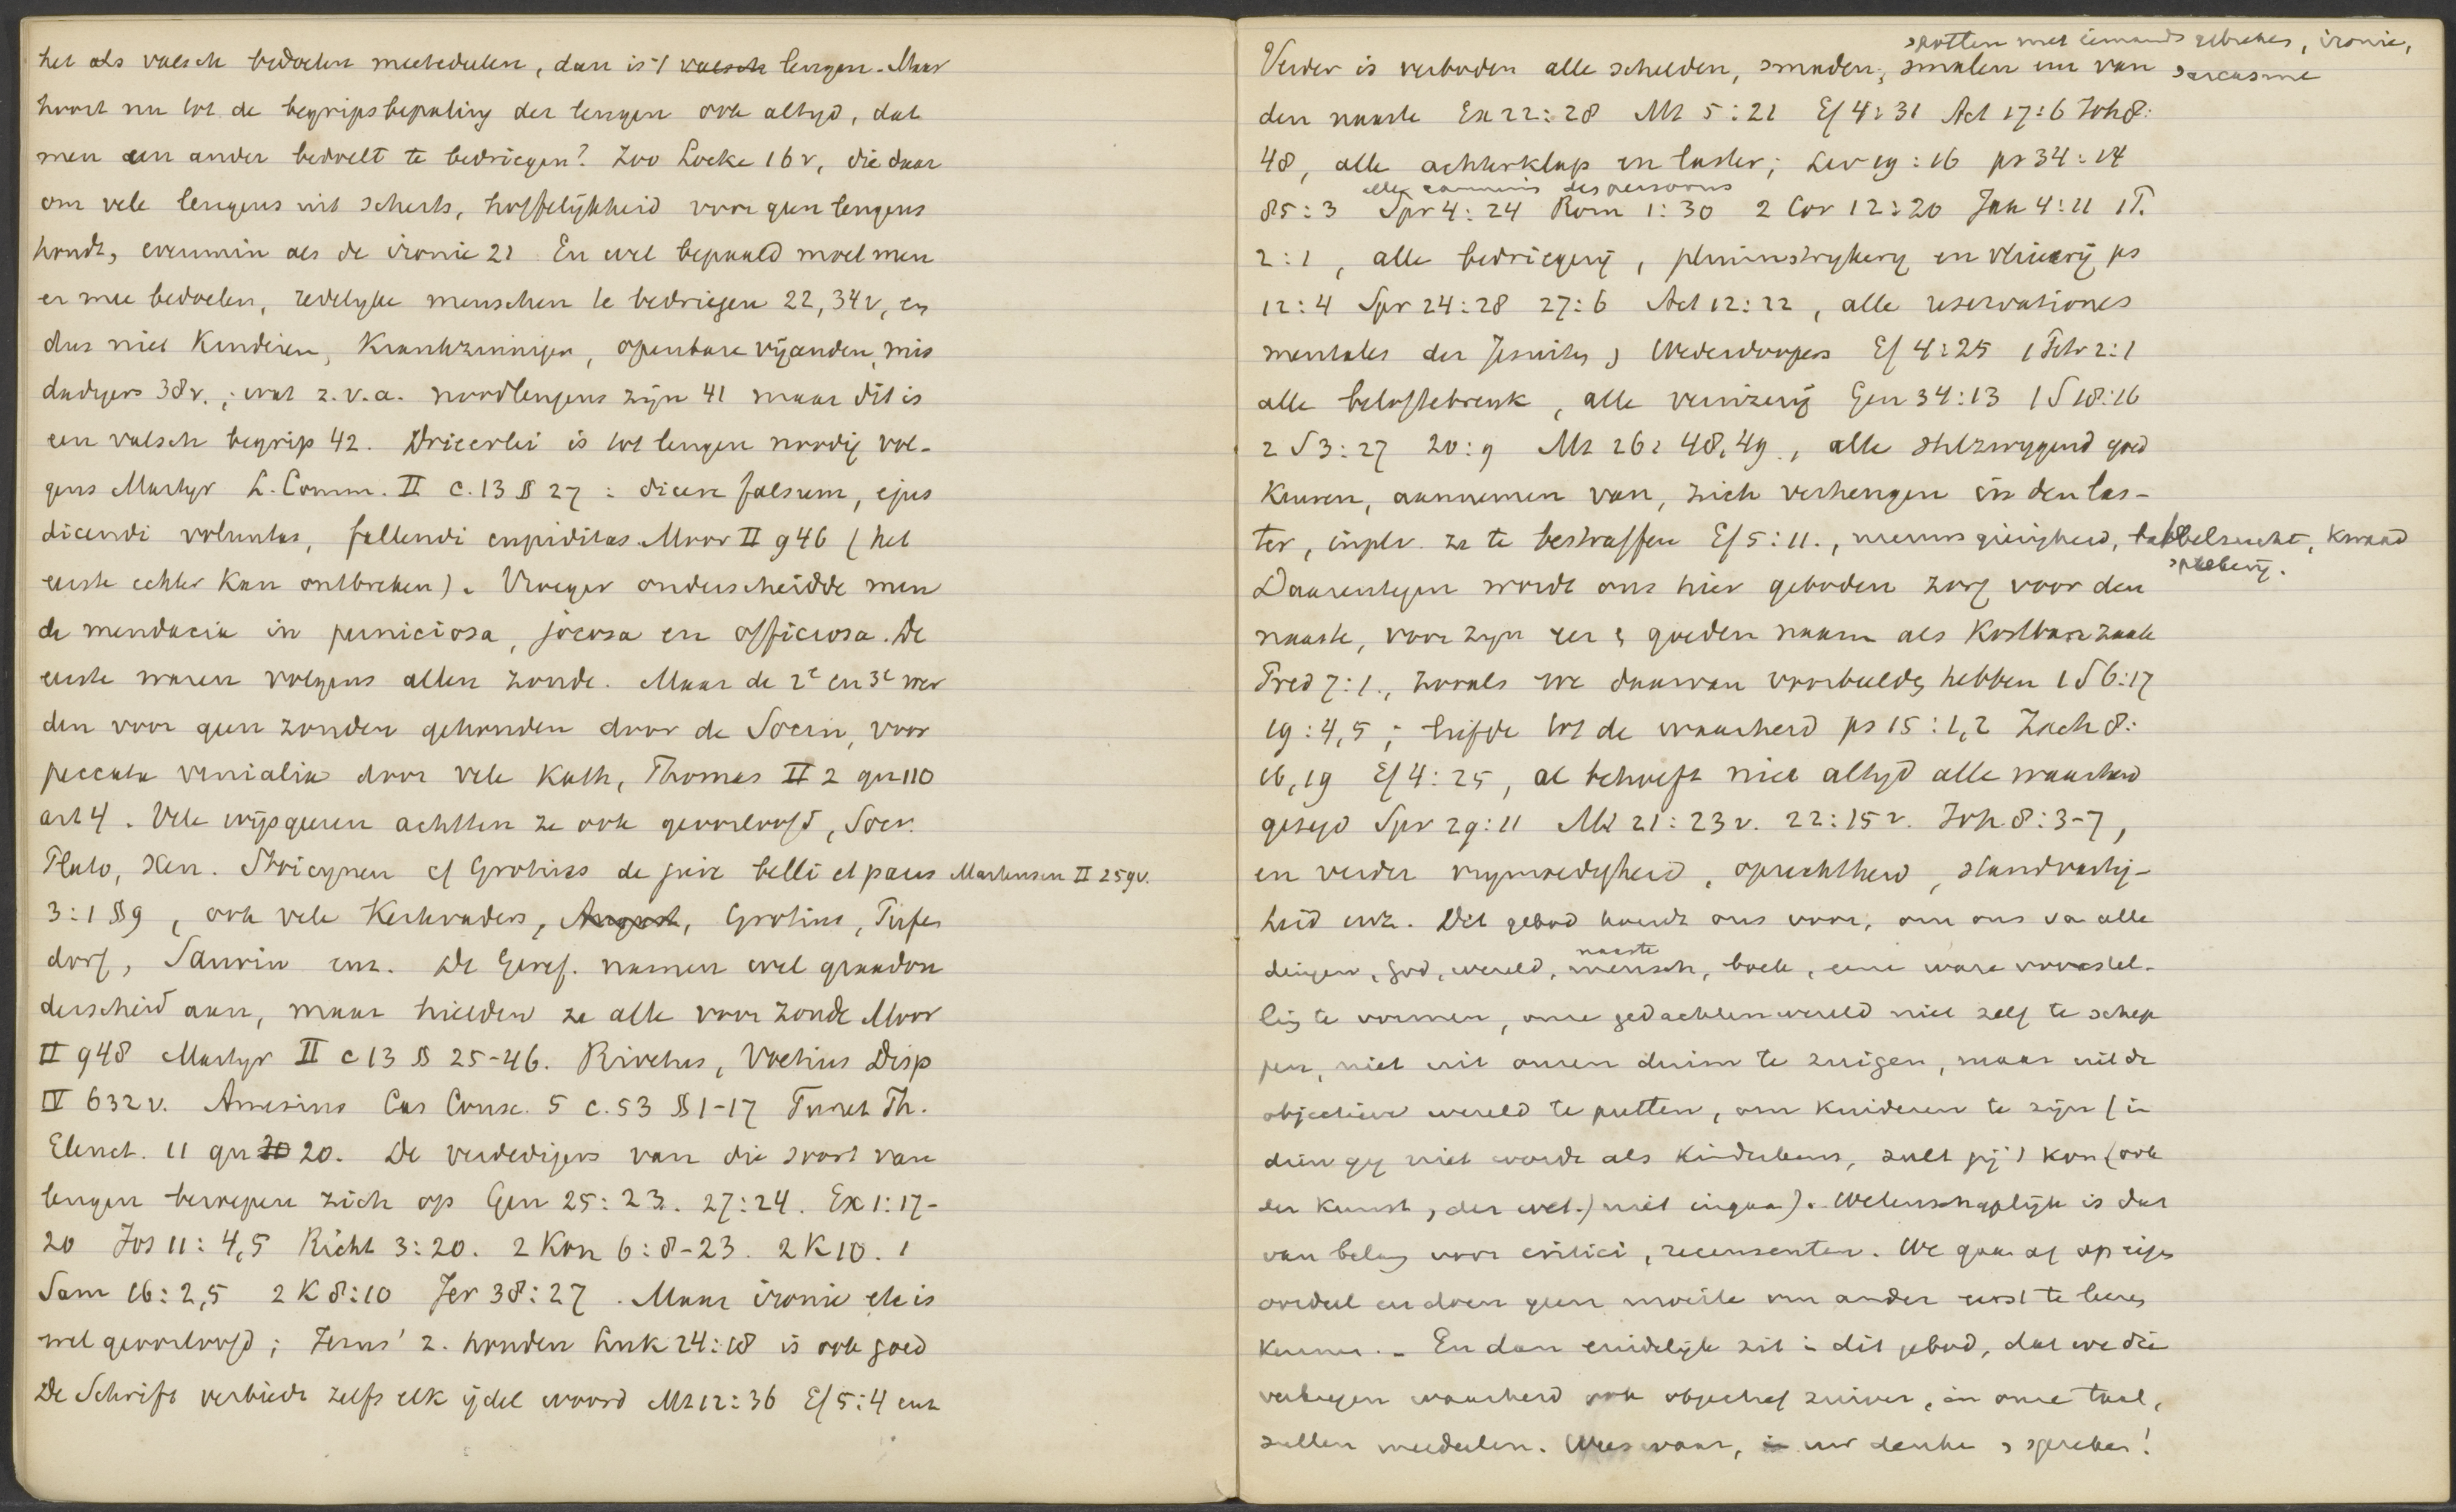 het als valsch bedoelen meetedeelen, dan is 't valsch leugen. Maar
hoort nu tot de begripsbepaling der leugen ook altyd, dat
men een ander bedoelt te bedriegen? Zoo Locke 16v, die daar
om vele leugens uit scherts, hoffelijkheid voor geen leugens
houdt, evenmin als de ironie 21 En wel bepaald moet men
er mee bedoelen, redelyke menschen te bedriegen 22, 34v, en
dus niet kinderen, krankzinnigen, openbare vijanden, mis
dadigers 38v.; wat z.v.a. noodleugens zijn 41 maar dit is
een valsch begrip 42. Drieerlei is tot leugen noodig vol-
gens Martyr L. Comm. II c. 13 § 27: dicere falsum, ejus
dicendi voluntas, fallendi cupiditas. Moor II 946 (het
eerste echter kan ontbreken). Vroeger onderscheidde men
de mendacia in perniciosa, jocosa en officiosa. De
eerste waren volgens allen zonde. Maar de 2e en 3e wer
den voor geen zonden gehouden door de Socin, voor
peccata venialia door vele Kath, Thomas II 2 qu 110
art 4. Vele wijsgeeren achtten ze ook geoorloofd, Socr.
Plato, Xen. Stoicynen cf Grotius de jure belli et pacis Martensen II 259v.
3:1 § 9, ook vele Kerkvaders, August, Grotius, Pufen
dorf, Saurin enz. De Geref. namen wel graadon
derscheid aan, maar hielden ze alle voor zonde Moor
II 948 Martyr II c 13 § 25-46. Rivetus, Voetius Disp
IV 632v. Amesius Cas Consc. 5 c. 53 § 1-17 Turret Th.
Elenct. 11 qu 20 20. De verdedigers van die soort van
leugen beroepen zich op Gen 25:23. 27:24. Ex 1:17-
20 Jos 11:4,5 Richt 3:20. 2 Kon 6:8-23. 2 K 10. 1
Sam 16:2,5 2 K 8:10 Jer 38:27. Maar ironie etc is
wel geoorloofd; Jezus' z. houden Luk 24:18 is ook goed
De Schrift verbiedt zelfs elk ijdel woord Mt 12:36 Ef 5:4 enz
spotten met iemands gebreken, ironie,
Verder is verboden alle schelden, smaden, smalen enz van sarcasme
den naaste Ex 22:28 Mt 5:21 Ef 4:31 Act 17:6 Joh 8:
48, alle achterklap en laster; Lev 19:16 ps 34:14
alle des personnes
85:3 Spr 4:24 Rom 1:30 2 Cor 12:20 Jak 4:11 1 P.
2:1, alle bedriegerij, pluimstrykery en vleierij ps
12:4 Spr 24:28 27:6 Act 12:22, alle reservationes
mentales der Jesuiten, Wederdoopers Ef 4:25 1 Petr 2:1
alle beloftebreuk, alle veinzerij Gen 34:13 1 S 18:16
2 S 3:27 20:9 Mt 26:48,49., alle stilzwygend goed
keuren, aannemen van, zich verheugen in den las-
ter, inplv. ze te bestraffen Ef 5:11., nieuwsgierigheid, babbelzucht, kwaad
sprekerij.
Daarentegen wordt ons hier geboden zorg voor den
naaste, voor zyn eer & goeden naam als kostbare zaak
Pred 7:1., zooals we daarvan voorbeelden hebben 1 S 6:17
19:4,5; liefde tot de waarheid ps 15:1,2 Zach 8:
16,19 Ef 4:25, al behoeft niet altyd alle waarheid
gezegd Spr 29:11 Mt 21:23v. 22:15v. Joh 8:3-7,
en verder vrymoedigheid, oprechtheid, standvastig-
heid enz. Dit gebod houdt ons voor, om ons van alle
naaste
dingen, God, wereld, mensch, boek, eene ware voorstel-
ling te vormen, onze gedachtenwereld niet zelf te schep
pen, niet uit onzen duim te zuigen, maar uit de
objectieve wereld te putten, om kinderen te zijn (in
dien gij niet wordt als kinderkens, zult gij 't kon (ook
der kunst, der wet.) niet ingaan). Wetenschaplijk is dat
van belang voor critici, recensenten. We gaan af op eigen
oordeel en doen geen moeite om ander eerst te leeren
kennen. – En dan eindelijk zit in dit gebod, dat we die
verkregen waarheid ook objectief zuiver, in onze taal,
zullen meedeelen. Wees waar, in uw denken & spreken!